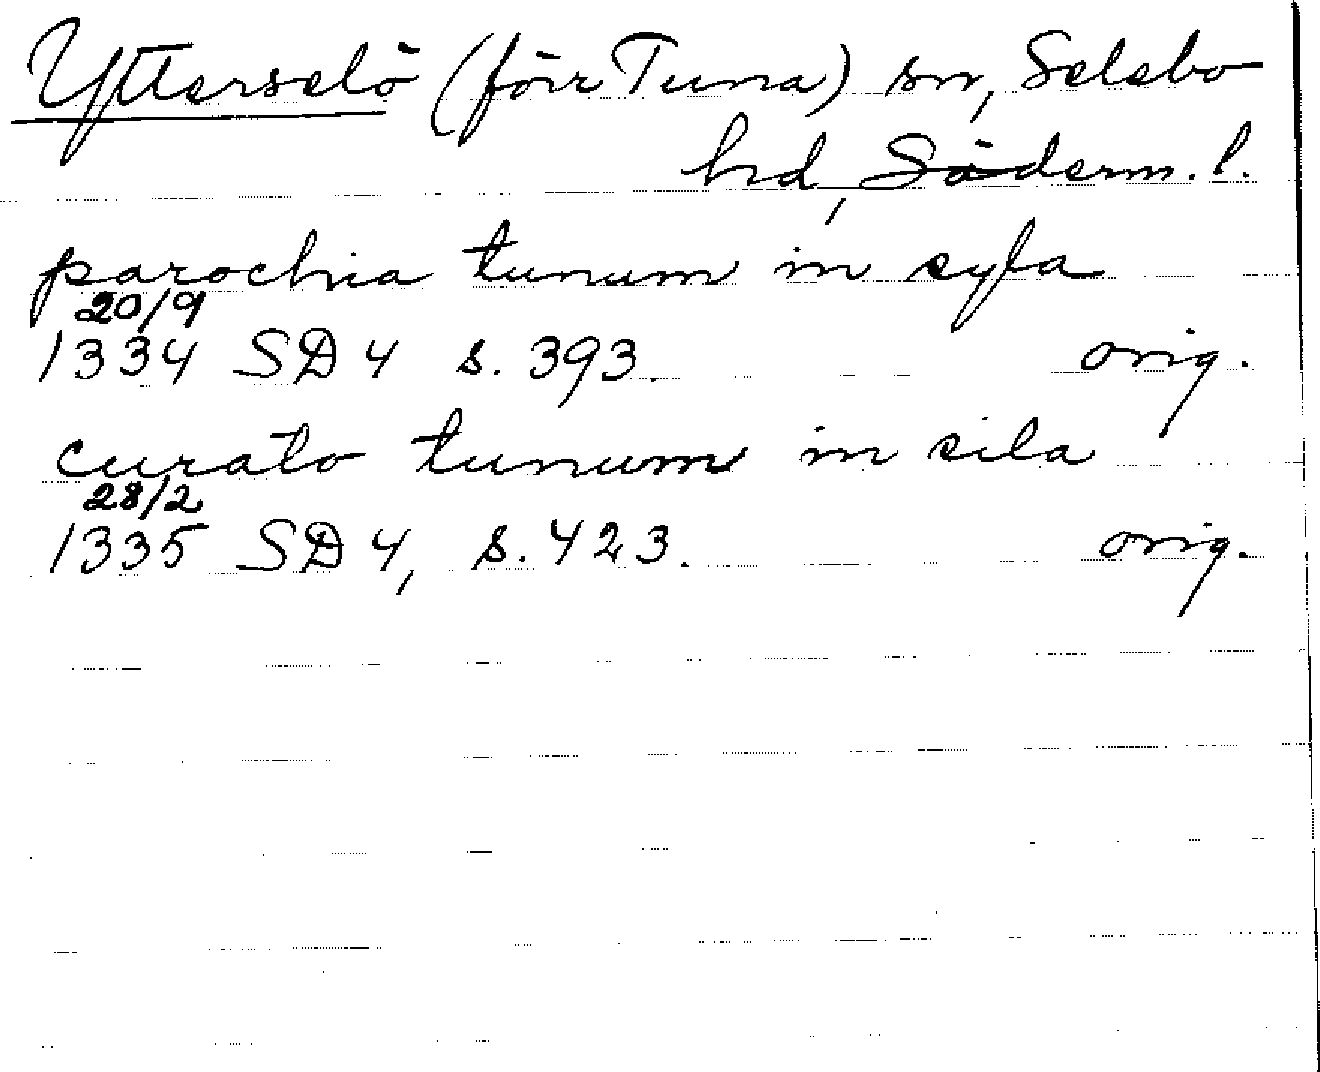 Ytterselö (förr Tuna) sn, Selebo
hd, Söderm. l.
parochia tunum in syla
20/9
1334 SD 4 s. 393. orig.
curato tunum in sila
28/2
1335 SD 4, s. 423. orig.